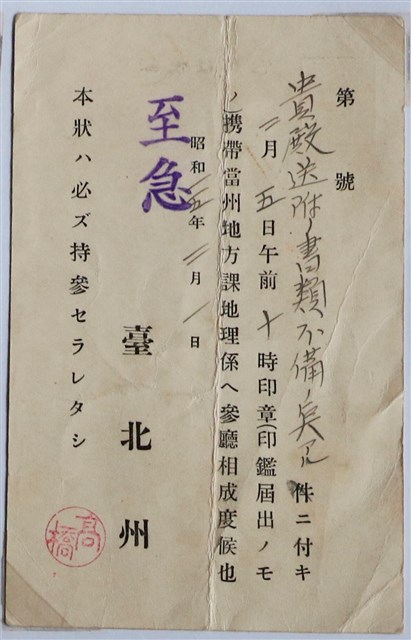 第　號
貴殿送附ノ書類不備ノ点アル件ニ付キ
二月五日午前十時印章(印鑑屆出ノモ
ノ)携帶當州地方課地理係ヘ參廳相成度候也
昭和一五年二月一日
至急
臺北州
高橋
本狀ハ必ズ持參セラレタシ